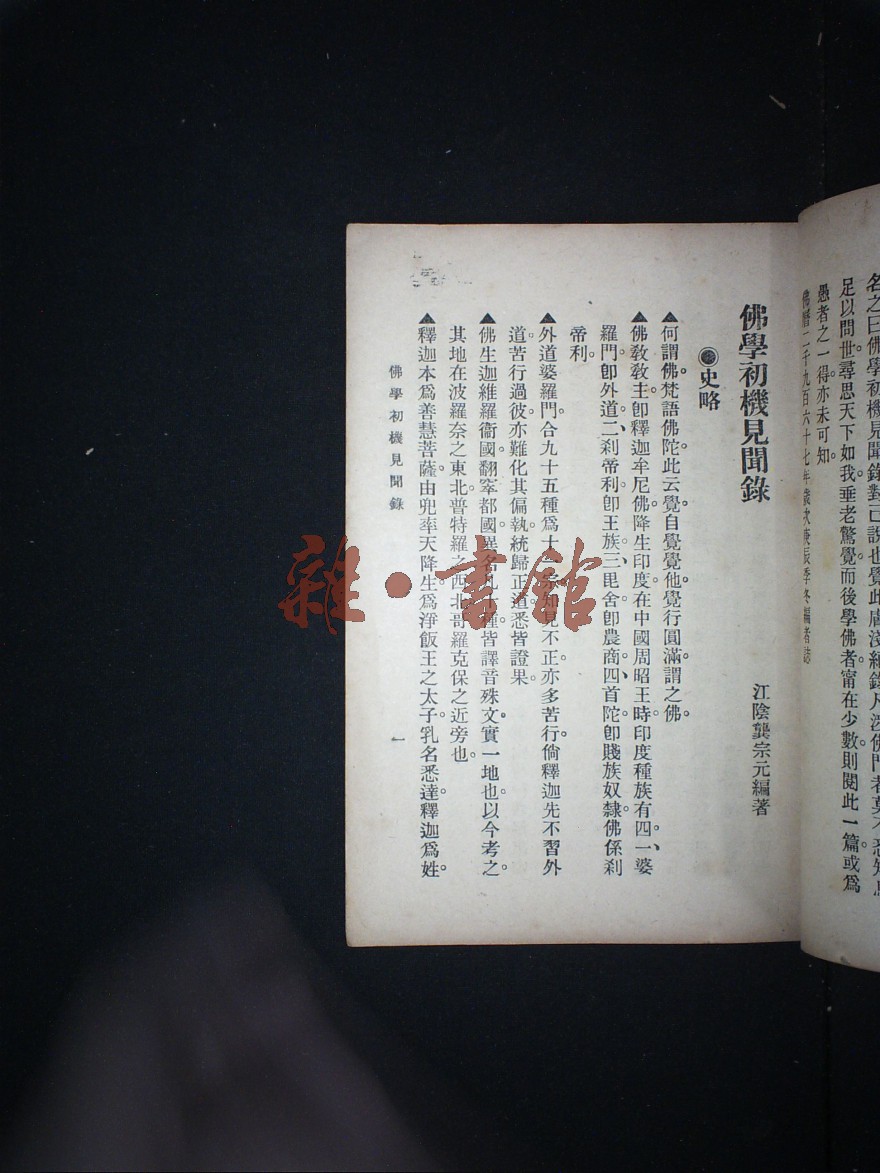 名之曰佛學初機見聞錄對己說也覺此膚淺
足以問世尋思天下如我垂老驚覺而後學佛者甯在少數則閱此一篇或爲
愚者之一得亦未可知。
佛曆二千九百六十七年歲次庚辰季冬編者誌
佛學初機見聞錄
江陰龔宗元編著
史略
▲何謂佛梵語佛陀此云覺。自覺覺他覺行圓滿謂之佛。
▲佛敎敎主卽釋迦牟尼佛。降生印度。在中國周昭王時。印度種族有四。一、婆
羅門卽外道。二、剎帝利卽王族。三、毘舍卽農商。四、首陀卽賤族奴隸。佛係剎
帝利。
▲外道婆羅門。合九十五種。爲十宗。知見不正。亦多苦行。倘釋迦先不習外
道苦行過彼。亦難化其偏執。統歸正道。悉皆證果。
▲佛生迦維羅衞國。翻窣都國。異名凡十種。皆譯音殊。文實一地也。以今考之。
其地在波羅奈之東北。普特羅之西北。哥羅克保之近旁也。
▲釋迦本爲善慧菩薩。由兜率天降生。爲淨飯王之太子。乳名悉達。釋迦爲姓。
佛學初機見聞錄
一
雜·書館